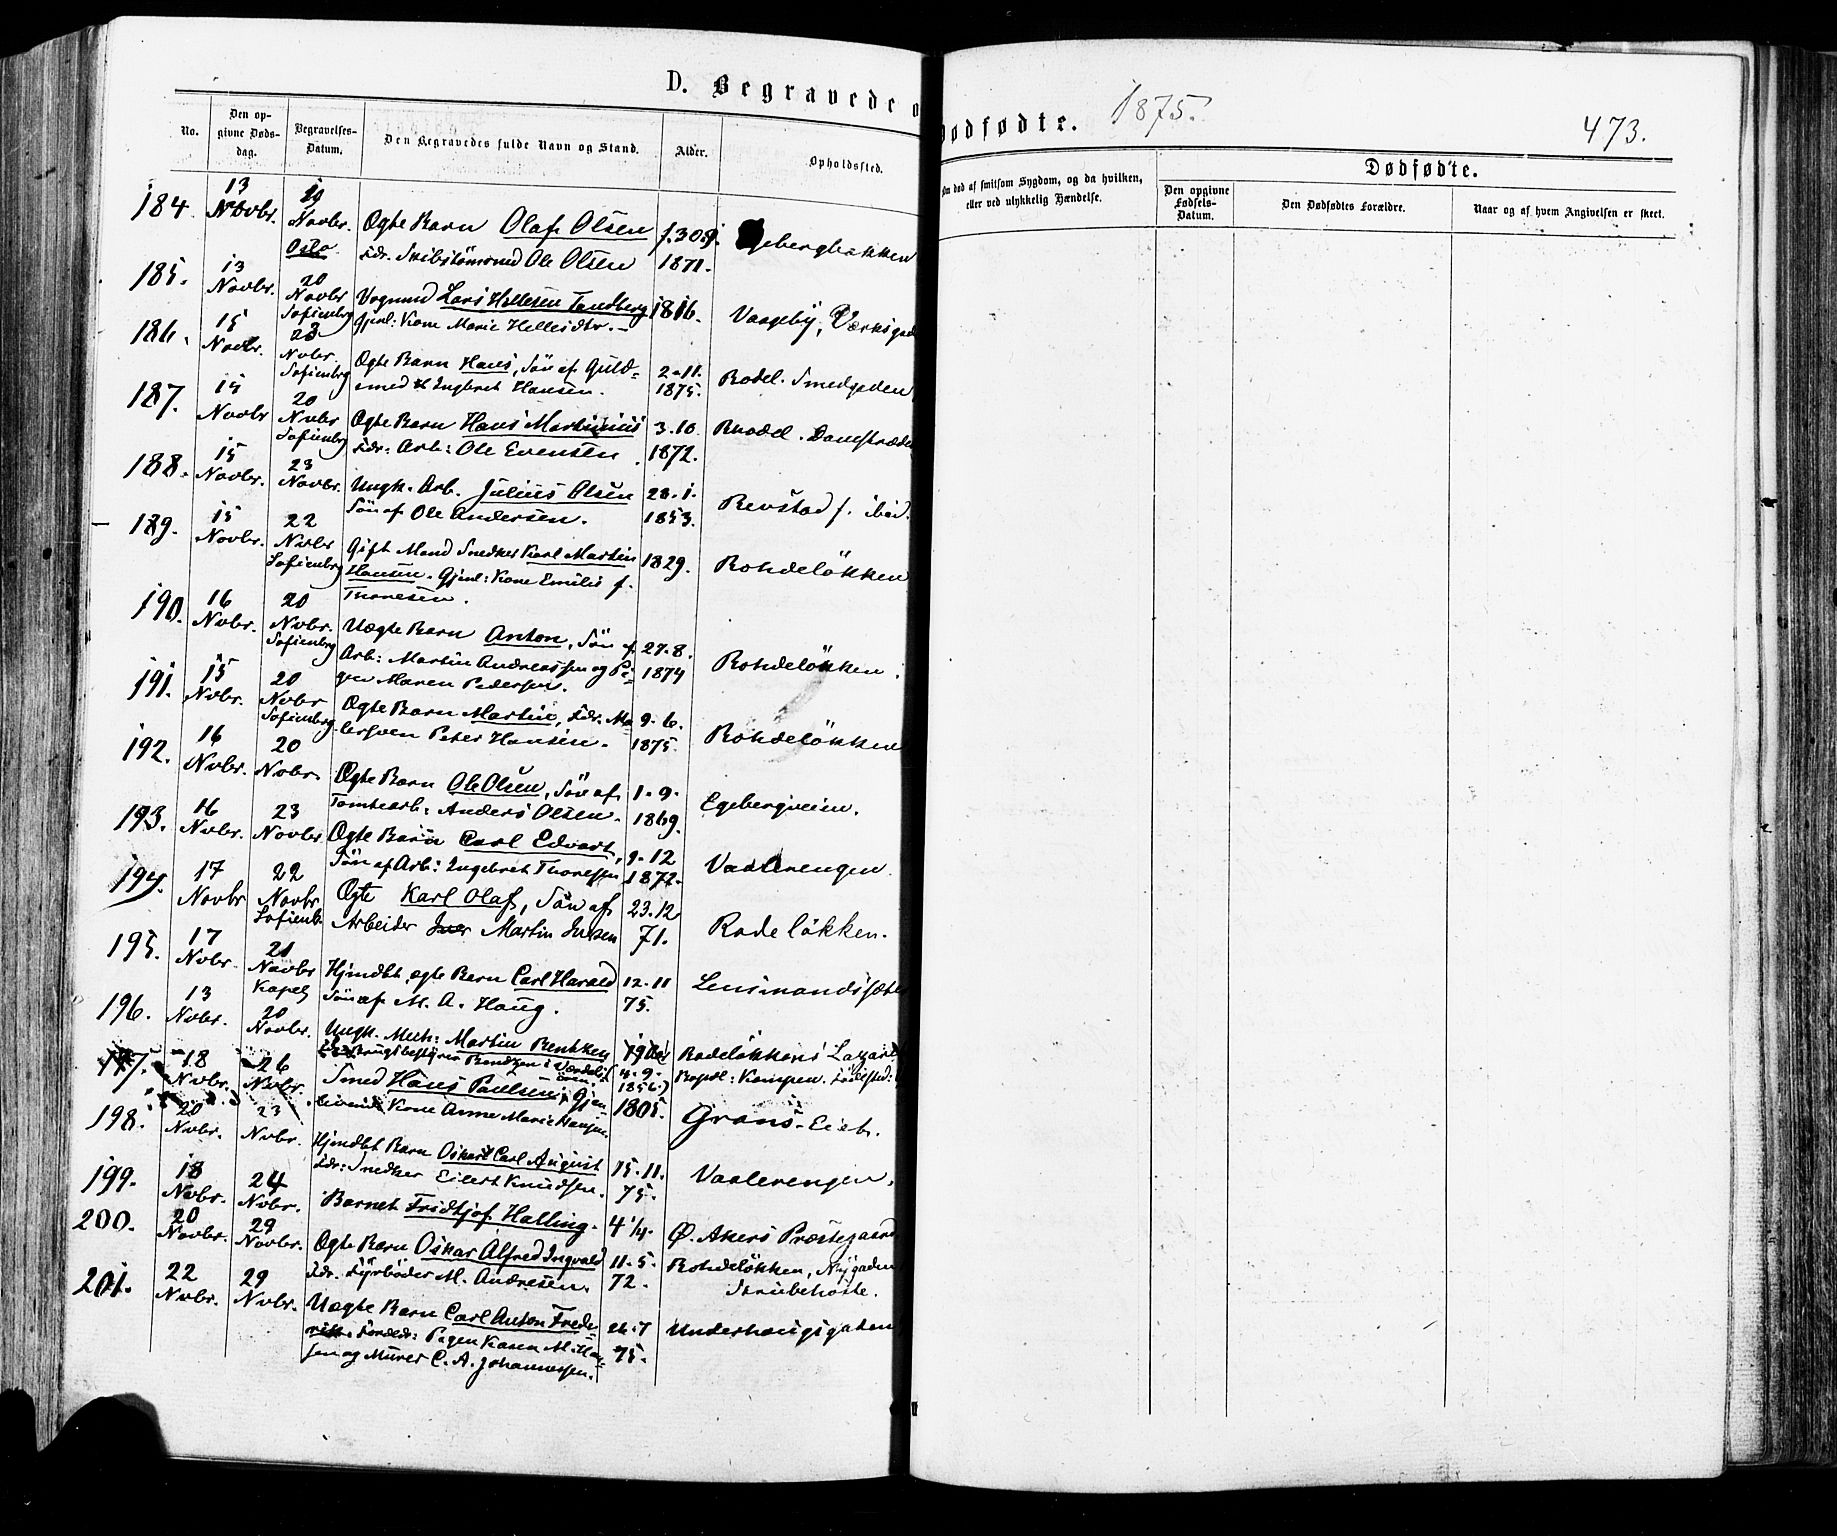 D. Begravede o
Dødfødte. 1875.
473.
No.
Den op-
givne Døds-
dag.
Begravelses-
Datum.
Den Begravedes fulde Navn og Stand.
Alder.
Opholdssted.
Om død af smitsom Sygdom, og da hvilken,
eller ved ulykkelig Hændelse.
Dødfødte.
Den opgivne
Fødsels-
Datum.
Den Dødfødtes Forældre.
Naar og af hvem Angivelsen er skeet.
184. 13 Novbr. 19 Novbr. Oslo Ægte Barn Olaf Olsen f. 30.9. Egebergbakken
Fdr. Skibstömmmd Ole Olsen 1871.
185. 13 Novbr. 20 Novbr Sofienbrg Vognmd Lars Hellesen Tandberg 1816. Vaageby, Værksgad
Gjenl: Kone Marie Hellesdtr. -
186. 15 Novbr. 23 Novbr. Sofienbrg Ægte Barn Hans, Sön af Guld- 2-11. Rodel. Smedgaden
smed Ingbret Hansen. 1875.
187. 15 Novbr 20 Novbr Sofienbrg Ægte Barn Hans Martinius 3.10 Rhodel. Damstræde
Fdr: Arb: Ole Evensen. 1872.
188. 15 Novbr. 23 Novbr. Ungk. Arb. Julius Olsen 28.1. Revstad f. ibid.
Sön af Ole Andersen. 1853.
189. 15 Novbr. 22 Novbr Sofienbrg Gift Mand Snedker Karl Martin 1829. Rohdelökken
Hansen. Gjenl: Kone Emilie f.
Thoresen.
190. 16 Novbr. 20 Novbr. Sofienbrg Uægte Barn Anton, Sön af 27.8. Rohdelökken.
Arb: Martin Andreassen og Pi- 1874
gen Maren Pedersen.
191. 15 Novbr. 20 Novbr Sofienbrg. Ægte Barn Martin, Fdr. Ma- 9.6. Rohdelökken
lersven Peter Hansen. 1875.
192. 16 Novbr. 20 Novbr. Ægte Barn Ole Olsen, Sön af 1.9. Egebergveien.
Tomtearb: Anders Olsen. 1869.
193. 16 Novbr. 23 Novbr Ægte Barn Carl Edvart, 9-12 Vaalerengen
Sön af Arb: Ingebret Thoresen 1872.
194. 17 Novbr 22 Novbr. Sofienb. Ægte Karl Olaf, Sön af 23.12 Rodelökken.
Arbeider Iver Martin Iversen 71.
195. 17 Novbr. 21 Novbr Kapel Hjmdbt ægte Barn Carl Harald 12-11 Lensmandssæte
Sön af M. A. Haug. 75.
196. 13 Novbr. 20 Novbr. Ungk. Mech: Martin Bentzen 19 Rodelökkens Lazaret
Brugsbestyrer Bendzen i 4.9. 1856.) Kapel: Kampen. Födested:
197. 18 Novbr. 26 Novbr. Smed Hans Paulsen, Gjen- 1805. Grøns-Eieb.
levende Kone Anne Marie Hansen.
198. 20 Novbr. 23 Novbr. Hjmdbt Barn Oskar Carl August 15.11. Vaalerengen.
Fdr: Snedker Eilert Knudsen. 75.
199. 18 Novbr. 24 Novbr. Barnet Fridtjof Halling. 4 1/4. Ø. Akers Præstegaard
200. 20 Novbr. 29 Novbr. Ægte Barn Oskar Alfred Ingvald 11.5. Rohdelökken, Nygaden
Fdr. Fyrböder M. Andresen. 72. Strubehoste.
201. 22 Novbr. 29 Novbr. Uægte Barn Carl Anton Frede- 26.7 Underhaugsgaden
rik. Foreldr: Pigen Karen M. Han- 75.
sen og Murer C. A. Johannesen.